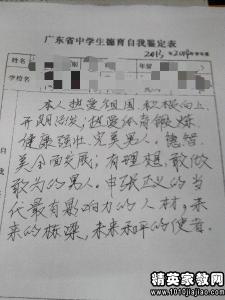 广东省中学生德育自我鉴定表
姓名
年级
学校名
本人热爱祖国 积极向上
开朗活泼，热爱体育锻炼
健康强壮，完美男人。德智
美全面发展，有理想敢做
敢为的男人。申张正义的当
代最有影响力的人材，未
来的栋梁，未来和平的使者。
自
我
精英家教网
www.1010jiajiao.com